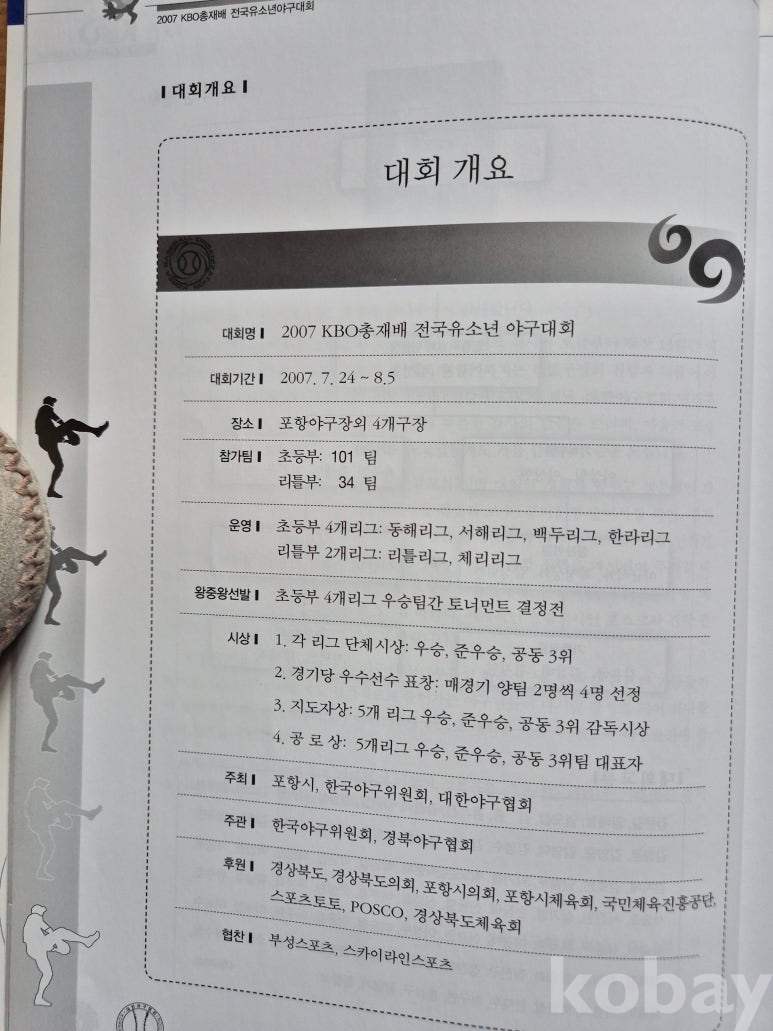 2007 KBO총재배 전국유소년야구대회
대회개요
대회 개요
대회명 2007 KBO총재배 전국유소년 야구대회
대회기간 2007. 7. 24 ~ 8.5
장소 포항야구장외 4개구장
참가팀 초등부: 101 팀
리틀부: 34 팀
운영 초등부 4개리그: 동해리그, 서해리그, 백두리그, 한라리그
리틀부 2개리그: 리틀리그, 체리리그
왕중왕선발 초등부 4개리그 우승팀간 토너먼트 결정전
시상 1. 각 리그 단체시상: 우승, 준우승, 공동 3위
2. 경기당 우수선수 표창: 매경기 양팀 2명씩 4명 선정
3. 지도자상: 5개 리그 우승, 준우승, 공동 3위 감독시상
4. 공 로 상: 5개리그 우승, 준우승, 공동 3위팀 대표자
주최 포항시, 한국야구위원회, 대한야구협회
주관 한국야구위원회, 경북야구협회
후원 경상북도, 경상북도의회, 포항시의회, 포항시체육회, 국민체육진흥공단,
스포츠토토, POSCO, 경상북도체육회
협찬 부성스포츠, 스카이라인스포츠
kobay